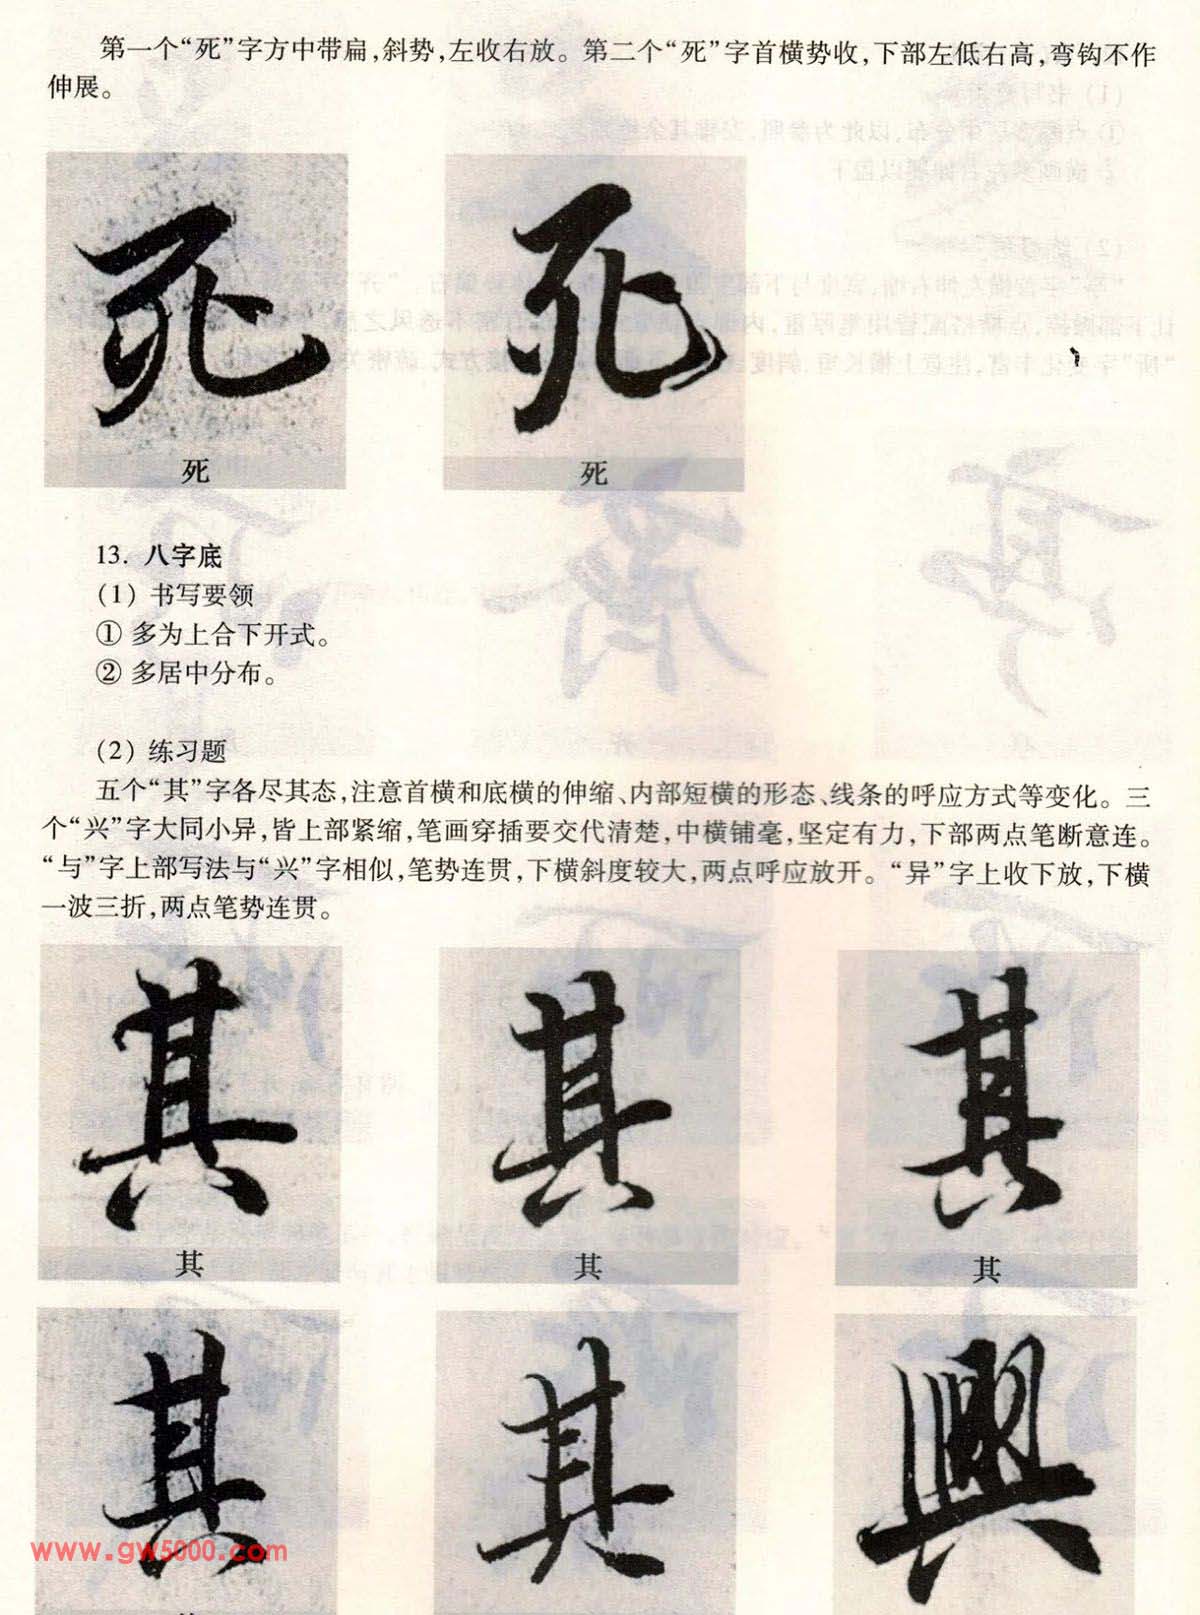 第一个“死”字方中带扁,斜势,左收右放。第二个“死”字首横势收,下部左低右高,弯钩不作
伸展。
死 死
死 死
13. 八字底
(1) 书写要领
① 多为上合下开式。
② 多居中分布。
(2) 练习题
五个“其”字各尽其态,注意首横和底横的伸缩、内部短横的形态、线条的呼应方式等变化。三
个“兴”字大同小异,皆上部紧缩,笔画穿插要交代清楚,中横铺毫,坚定有力,下部两点笔断意连。
“与”字上部写法与“兴”字相似,笔势连贯,下横斜度较大,两点呼应放开。“异”字上收下放,下横
一波三折,两点笔势连贯。
其 其 其
其 其 其
其 其 興
www.gw5000.com